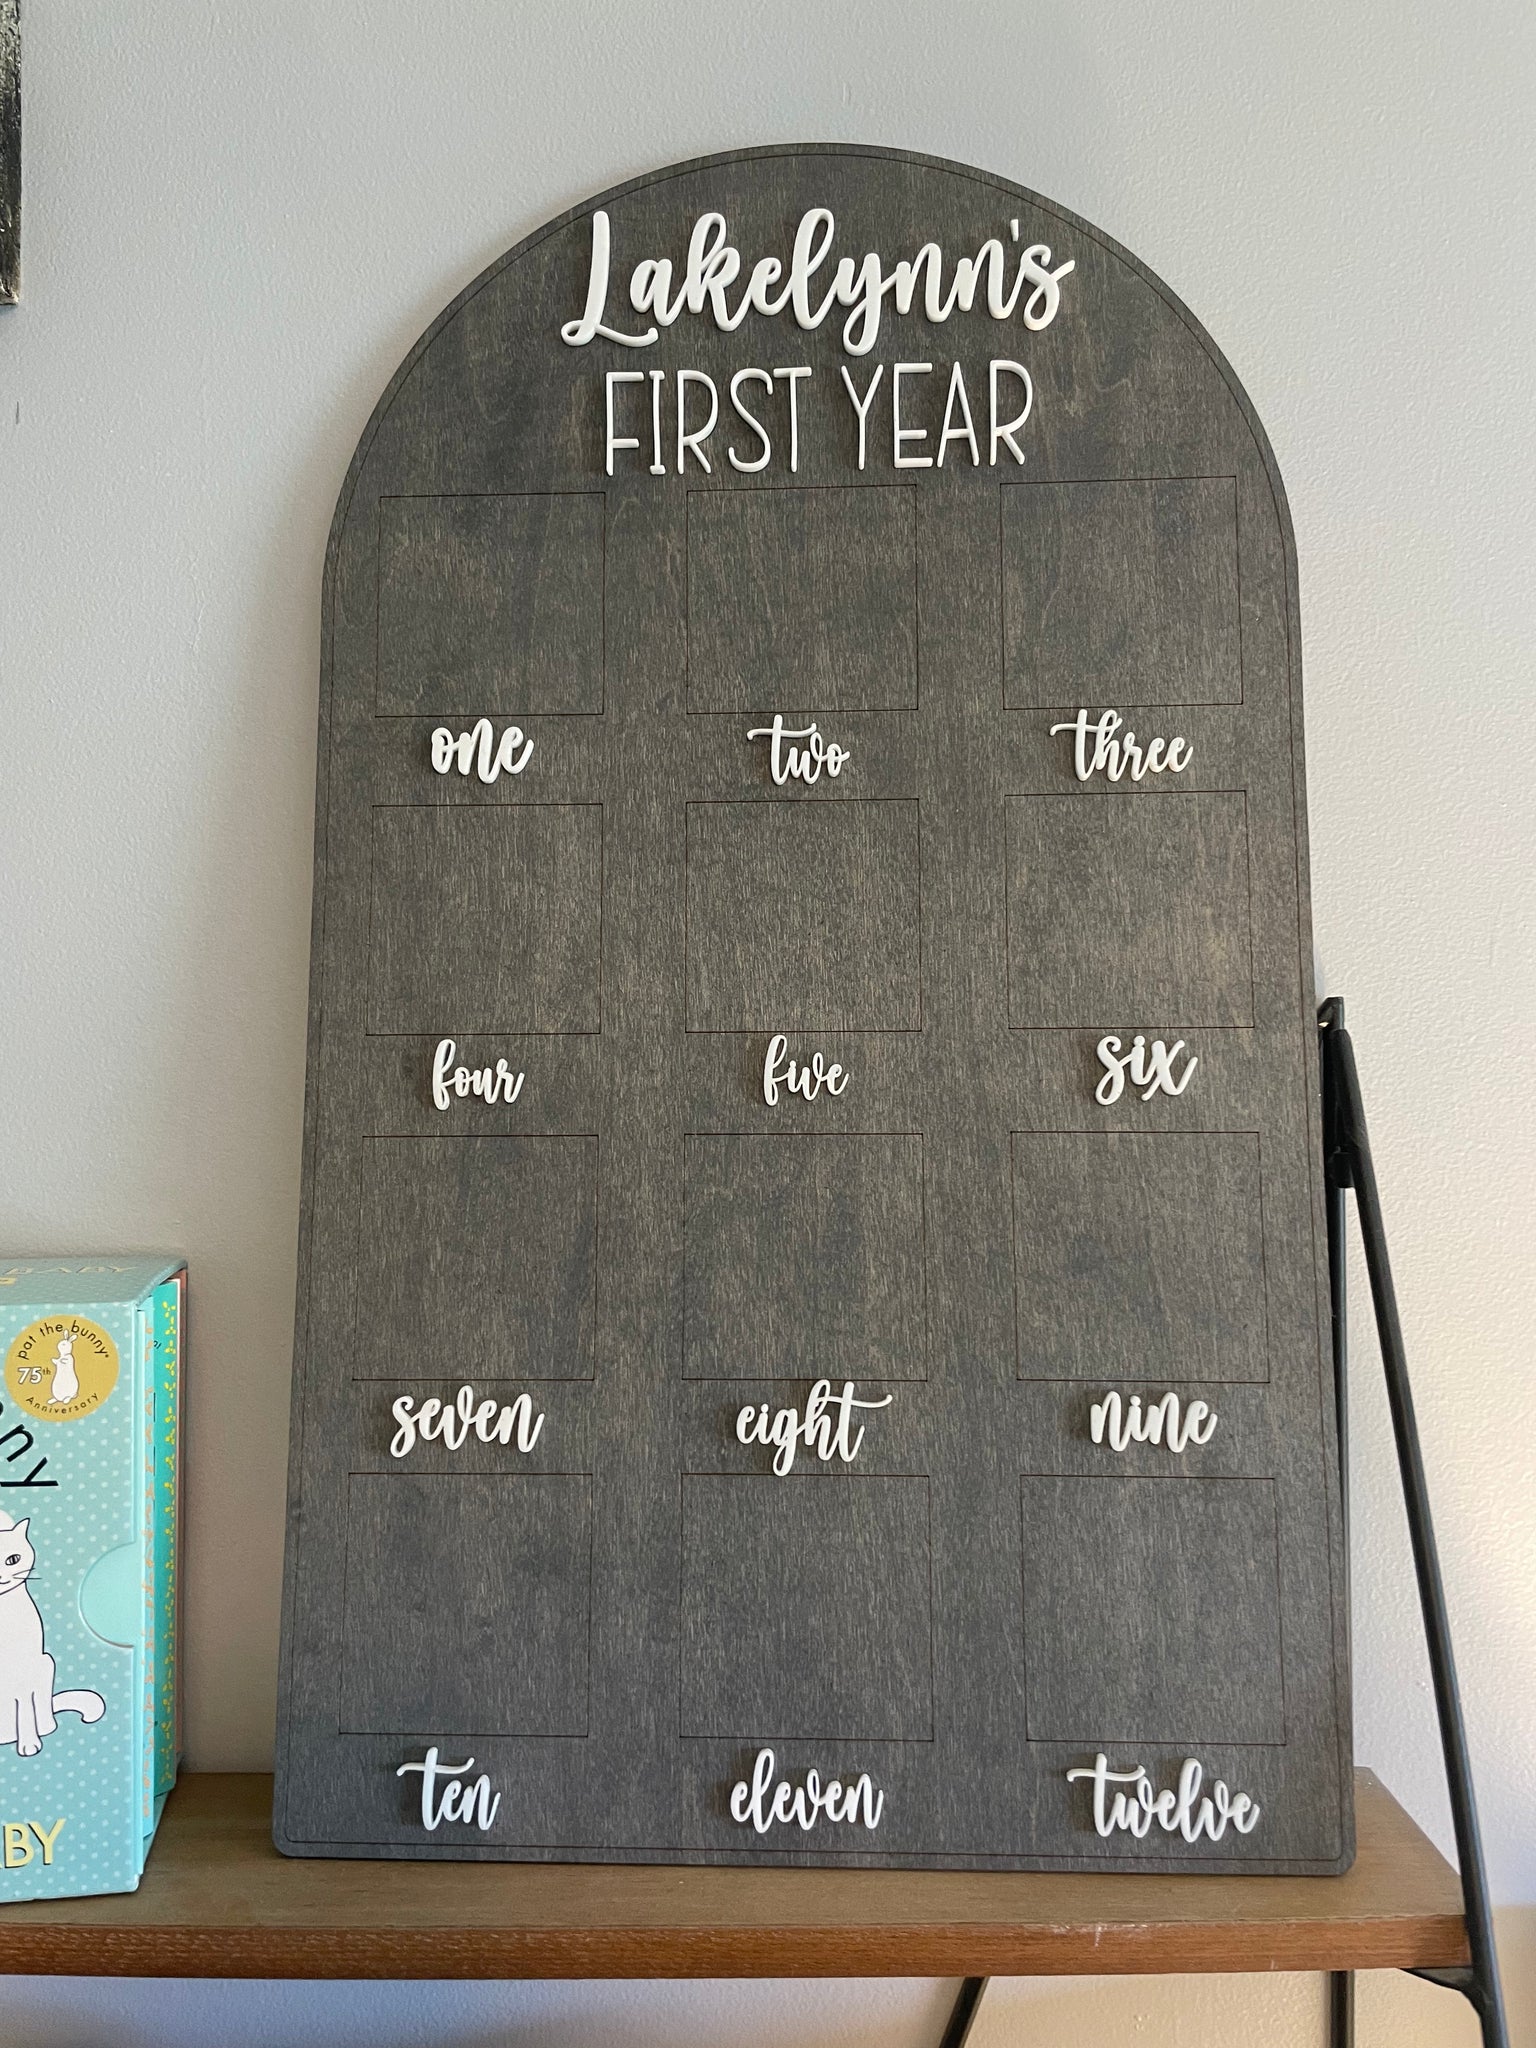 Lakelynn's
FIRST YEAR
one two three
four five six
seven eight nine
ten eleven twelve
pat the bunny
75th
Anniversary
BABY